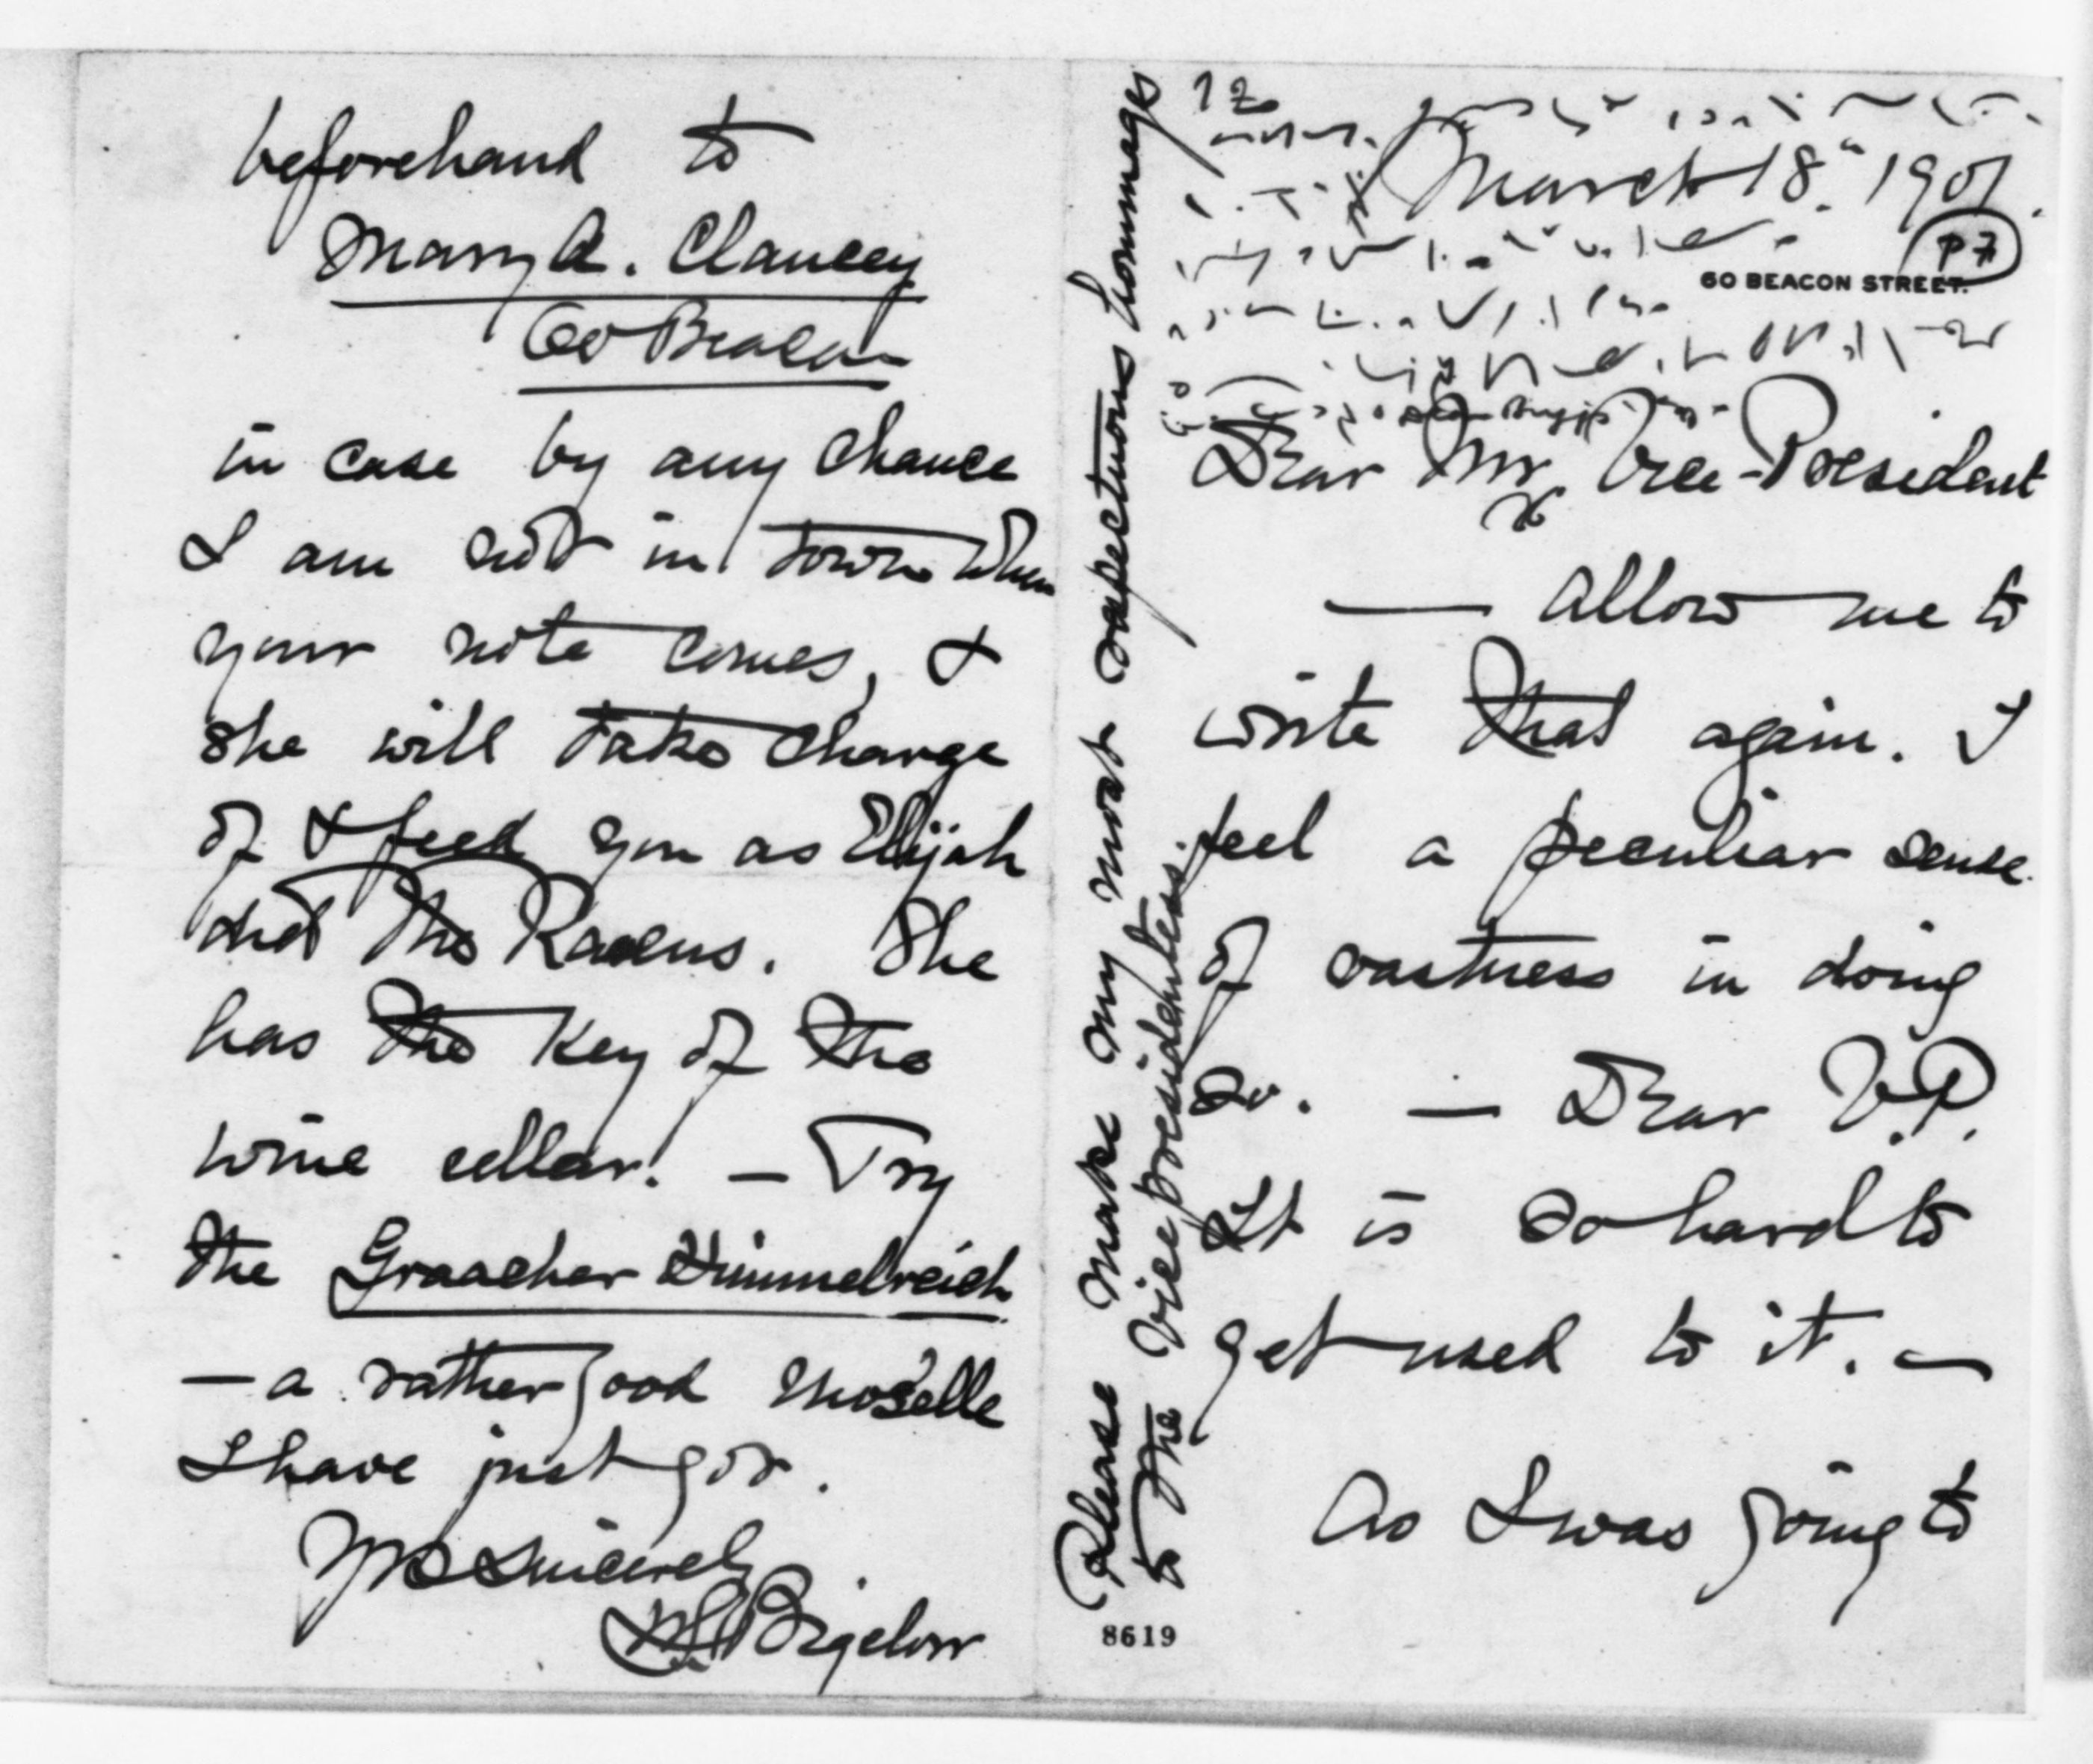 beforehand to
Mary A. Clancey
60 Beacon
in case by any chance
I am not in town when
your note comes, &
she will take charge
of & feed you as Elijah
did the Ravens. She
has the key of the
wine cellar! — Try
the Graacher Himmelreich
— a rather good Moselle
I have just got.
Yrs sincerely
W S Bigelow
Please make my most respectuous hommages
to the Vice presidentess.
8619
March 18. 1901.
P 7
60 BEACON STREET.
Dear Mr Vice-President
— Allow me to
write that again. I
feel a peculiar sense
of vastness in doing
so. — Dear V.P.
It is so hard to
get used to it. —
As I was going to